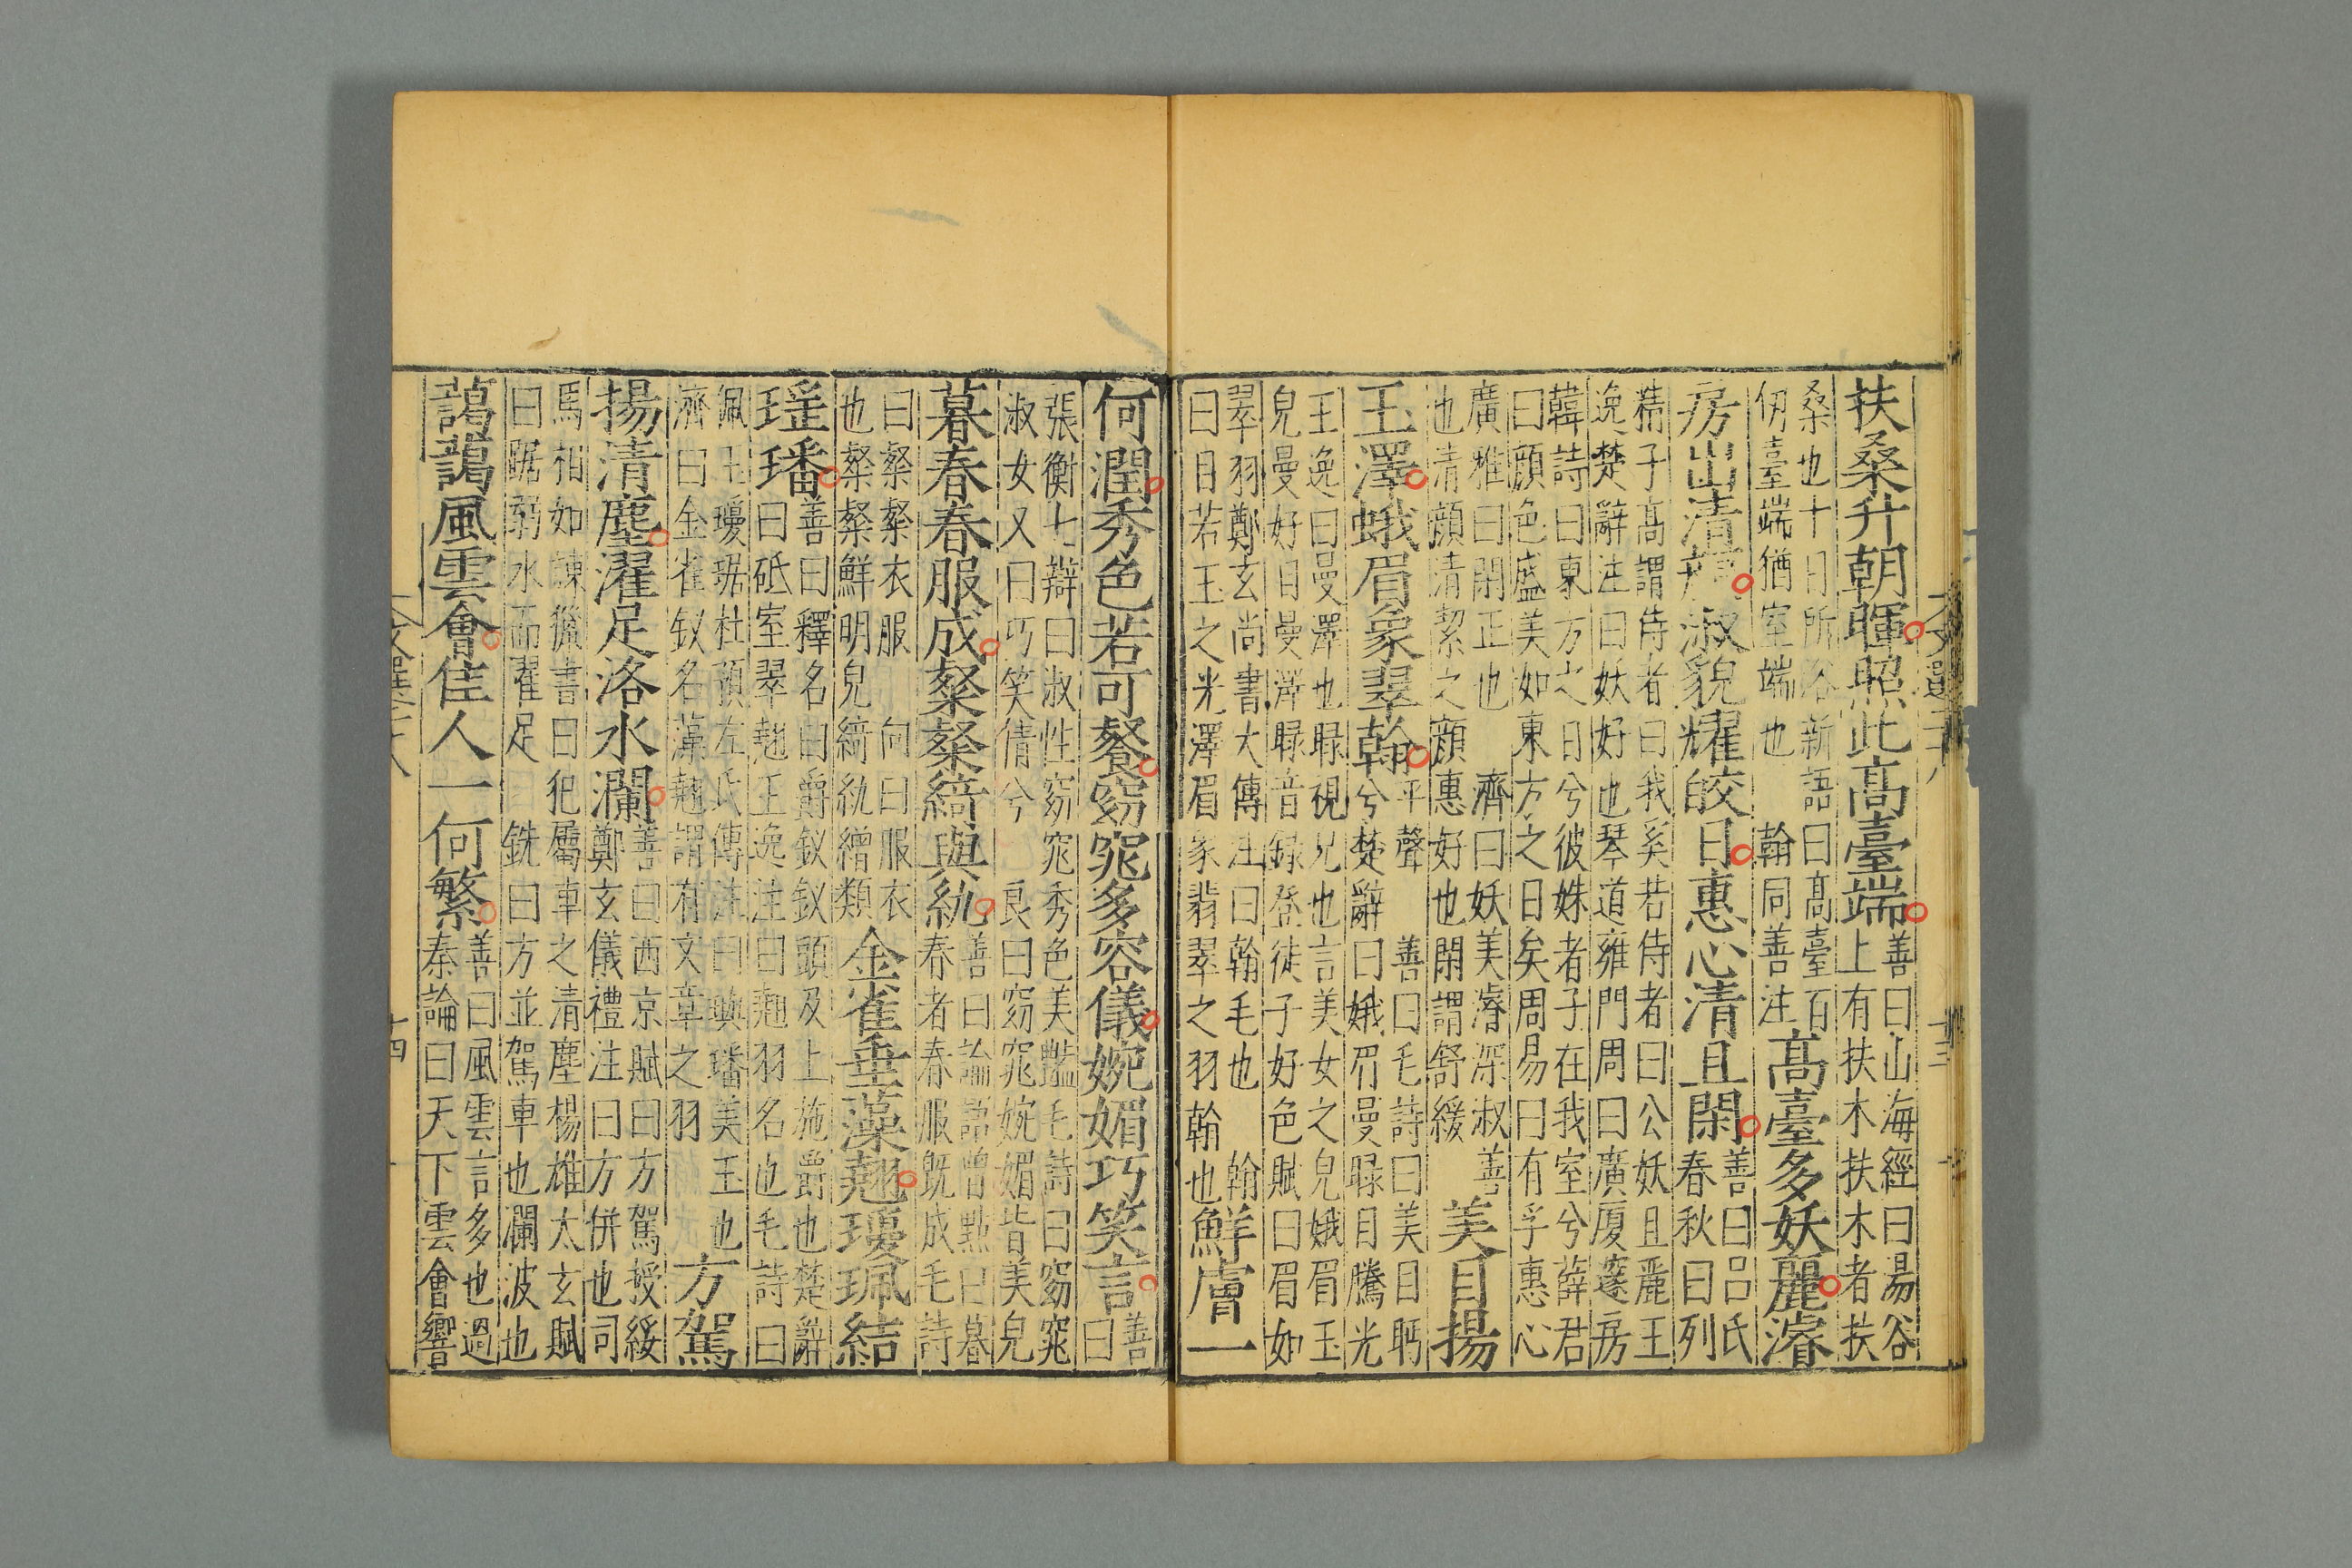 文選二十八
十三
扶桑升朝暉照此髙臺端善曰山海經曰湯谷
上有扶木扶木者扶
桑也十日所浴新語曰髙臺百
仞臺端猶室端也翰同善注髙臺多妖麗濬
房出清顔淑貌耀皎日惠心清且閑善曰呂氏
春秋曰列
精子髙謂侍者曰我奚若侍者曰公妖且麗王
逸楚辭注曰妖好也琴道雍門周曰廣厦邃房
韓詩曰東方之日兮彼姝者子在我室兮薛君
曰顔色盛美如東方之日矣周易曰有孚惠心
廣雅曰閑正也濟曰妖美濬深淑善
也清顔清潔之顔惠好也閑謂舒緩美目揚
玉澤蛾眉象翠翰平聲善曰毛詩曰美目眄
兮楚辭曰娥眉曼睩目騰光
王逸曰曼澤也睩視皃也言美女之皃娥眉玉
皃曼好目曼澤睩音録登徒子好色賦曰眉如
翠羽鄭玄尚書大傳注曰翰毛也翰
曰目若玉之光澤眉象翡翠之羽翰也鮮膚一
何潤秀色若可餐窈窕多容儀婉媚巧笑言善
曰
張衡七辯曰淑性窈窕秀色美豔毛詩曰窈窕
淑女又曰巧笑倩兮良曰窈窕婉媚皆美皃
暮春春服成粲粲綺與紈善曰論語曾點曰暮
春者春服既成毛詩
曰粲粲衣服向曰服衣
也粲粲鮮明皃綺紈繒類金雀垂藻翹瓊珮結
瑶璠善曰釋名曰爵釵釵頭及上施爵也楚辭
曰砥室翠翹王逸注曰翹羽名也毛詩曰
佩玉瓊琚杜預左氏傳注曰璵璠美玉也
濟曰金雀釵名藻翹謂有文章之羽方駕
揚清塵濯足洛水瀾善曰西京賦曰方駕授綏
鄭玄儀禮注曰方併也司
馬相如諫獵書曰犯屬車之清塵楊雄太玄賦
曰踞弱水而濯足銑曰方並駕車也瀾波也
藹藹風雲會佳人一何繁善曰風雲言多也過
秦論曰天下雲會響
十四